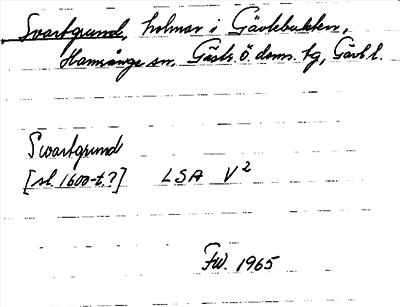 Svartgrund, holmar i Gävlebukten,
Hamrånge sn. Gästr. ö. doms. tg, Gävl. l.
Swartgrund
[sl. 1600-t.?] LSA V²
FW. 1965